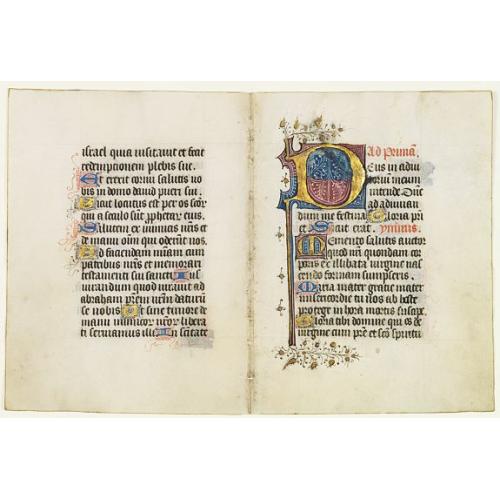 israel quia uisitauit et fecit
redemptionem plebis sue.
Et erexit cornu salutis no
bis in domo dauid pueri sui.
Sicut locutus est per os scõr
qui a seculo sũt ꝓphetar̃ eius.
Salutem ex inimicis nr̃is et
de manu oĩm qui oderũt nos.
Ad faciendam miãm cum
patribus nr̃is et memorari
testamenti sui sancti Ius
iurandum quod iurauit ad
abraham prẽm nr̃m daturũ
se nobis Ut sine timore de
manu inimicor̃ nr̃or̃ libera
ti seruiamus illi In sctãte
Ad Primã.
Deus in adiu
toriũ meum
intende Dñe
ad adiuuan
dum me festina Gloria pr̃i
et Sicut erat. ymnus.
Memento salutis auctor
quod nr̃i quondam cor
poris ex illibata uirgine nas
cendo formam sumpseris.
Maria mater gratie mater
misericordie tu nos ab hoste
protege in hora mortis suscipe
Gloria tibi domine qui es de
uirgine cum pr̃e et sc̃o spiritu